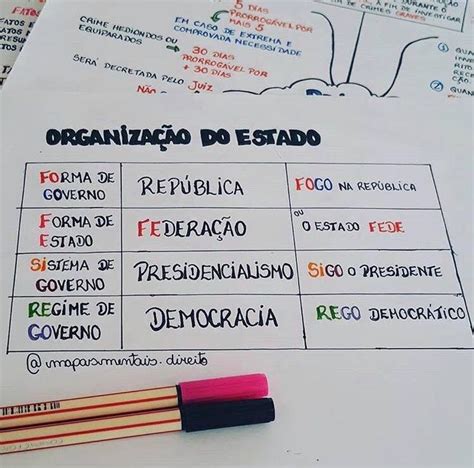 FATOS
5 DIAS
PRORROGÁVEL POR
MAIS 5
CRIME HEDIONDOS OU
EQUIPARADOS
EM CASO DE EXTREMA E
COMPROVADA NECESSIDADE
30 DIAS
PRORROGÁVEL POR
+ 30 DIAS
SERÁ DECRETADA PELO JUIZ
NÃO
DURANTE O
A FIM DE INVESTIGAR
CRIMES GRAVES
①
②
QUAN
ORGANIZAÇÃO DO ESTADO
FORMA DE
GOVERNO
REPÚBLICA
FOGO NA REPÚBLICA
FORMA DE
ESTADO
FEDERAÇÃO
OU
O ESTADO FEDE
SISTEMA DE
GOVERNO
PRESIDENCIALISMO
SIGO O PRESIDENTE
REGIME DE
GOVERNO
DEMOCRACIA
REGO DEMOCRÁTICO
@mapasmentais.direito